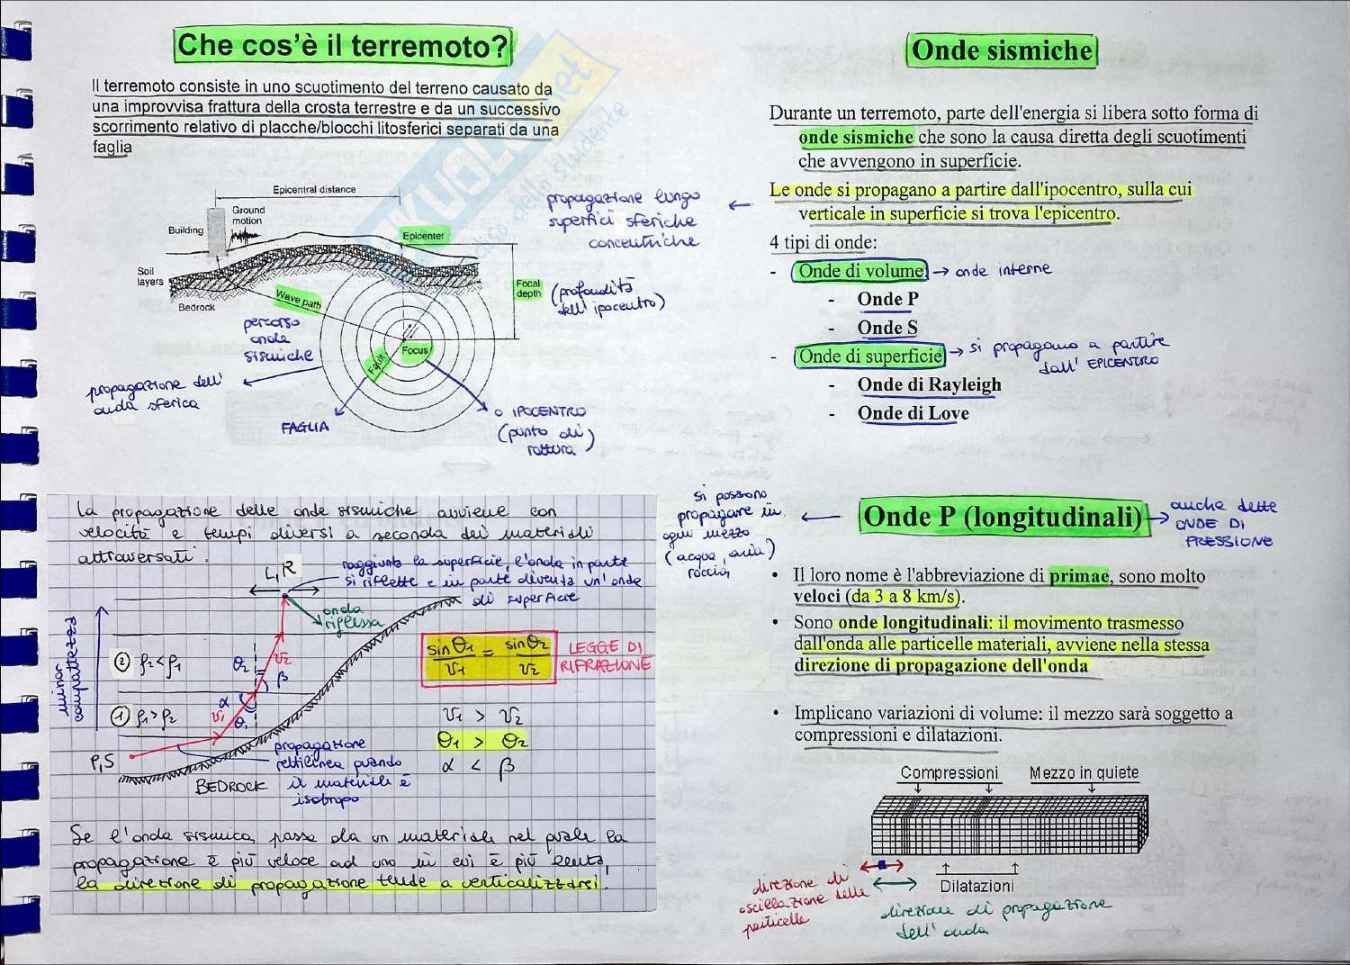 Che cos'è il terremoto?
Il terremoto consiste in uno scuotimento del terreno causato da
una improvvisa frattura della crosta terrestre e da un successivo
scorrimento relativo di placche/blocchi litosferici separati da una
faglia
Epicentral distance
Ground
motion
Building
Epicenter
Soil
layers
Bedrock
Wave path
Focal
depth
Focus
Fault
propagazione lungo
superfici sferiche
concentriche
(profondità
dell'ipocentro)
percorso
onda
sismiche
propagazione dell'
onda sferica
FAGLIA
o IPOCENTRO
(punto di
rottura)
La propagazione delle onde sismiche avviene con
velocità e tempi diversi a seconda dei materiali
attraversati.
L,R
raggiunta la superficie, l'onda in parte
si riflette e in parte diventa un'onda
di superficie
onda
riflessa
minor
compattezza
② ρ2<ρ1
① ρ1>ρ2
θ2
v2
β
α
v1
θ1
P,S
BEDROCK
propagazione
rettilinea quando
il materiale è
isotropo
sinθ1/v1 = sinθ2/v2
LEGGE DI
RIFRAZIONE
v1 > v2
θ1 > θ2
α < β
Se l'onda sismica passa da un materiale nel quale la
propagazione è più veloce ad uno in cui è più lenta,
la direzione di propagazione tende a verticalizzarsi.
Onde sismiche
Durante un terremoto, parte dell'energia si libera sotto forma di
onde sismiche che sono la causa diretta degli scuotimenti
che avvengono in superficie.
Le onde si propagano a partire dall'ipocentro, sulla cui
verticale in superficie si trova l'epicentro.
4 tipi di onde:
- Onde di volume → onde interne
- Onde P
- Onde S
- Onde di superficie → si propagano a partire
dall'EPICENTRO
- Onde di Rayleigh
- Onde di Love
Onde P (longitudinali)
anche dette
ONDE DI
PRESSIONE
si possono
propagare in
ogni mezzo
(acqua, aria,
roccia)
• Il loro nome è l'abbreviazione di primae, sono molto
veloci (da 3 a 8 km/s).
• Sono onde longitudinali: il movimento trasmesso
dall'onda alle particelle materiali, avviene nella stessa
direzione di propagazione dell'onda
• Implicano variazioni di volume: il mezzo sarà soggetto a
compressioni e dilatazioni.
Compressioni
Mezzo in quiete
Dilatazioni
direzione di
oscillazione delle
particelle
direzione di propagazione
dell'onda